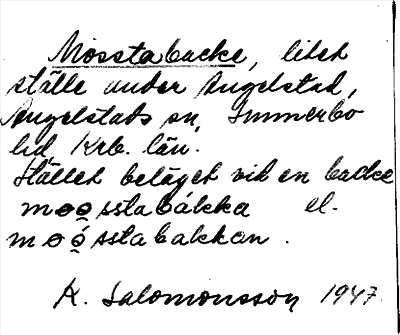 Mosstabacke, litet
ställe under Angelstad,
Angelstads sn, Sunnerbo
hd, Krb. län.
Stället beläget vid en backe
mo̱o̱sstabákka el.
mo̱ó̱sstabakkan.
K. Salomonsson 1947.